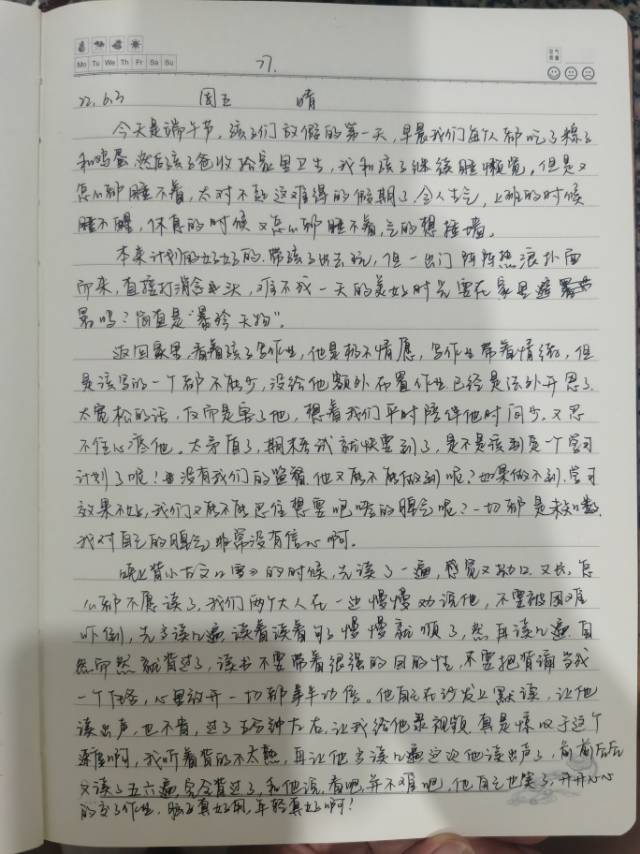 Mo Tu We Th Fr Sa Su
77.
22.6.3 周五 晴
今天是端午节,孩子们放假的第一天,早晨我们每人都吃了粽子
和鸡蛋,然后孩子爸收拾家里卫生,我和孩子继续睡懒觉,但是又
怎么都睡不着,太对不起这难得的假期了,令人生气,上班的时候
睡不醒,休息的时候又怎么都睡不着,气的想撞墙。
本来计划的好好的,带孩子出去玩,但一出门阵阵热浪扑面
而来,直接打消念头,难不成一天的美好时光要在家里避暑
吗?简直是“暴殄天物”。
返回家里,看着孩子写作业,他是极不情愿,写作业带着情绪,但
是该写的一个都不能少,没给他额外布置作业已经是法外开恩了,
太宽松的话,反而是害了他,想着我们平时陪伴他时间少,又忍
不住心疼他。太矛盾了,期末考试就快要到了,是不是该制定一个学习
计划了呢!没有我们的监督,他又能不能做到呢?如果做不到,学习
效果不好,我们又能不能忍住想要吧嗒的脾气呢?一切都是未知数,
我对自己的脾气非常没有信心啊。
晚上背小古文《雪》的时候,先读了一遍,感觉又拗口又长,怎
么都不愿读了,我们两个大人在一边慢慢劝说他,不要被困难
吓倒,先多读几遍,读着读着句子慢慢就顺了,然后再读几遍,自
然而然就背过了,读书不要带着很强的目的性,不要把背诵当成
一个任务,心里放开一切都事半功倍。他自己在沙发上默读,让他
读出声,也不肯,过了5分钟左右,让我给他录视频,真是惊叹于这个
速度啊,我听着背的不太熟,再让他多读几遍,这次他读出声了,前前后后
又读了五六遍,完全背过了,和他说,看吧,并不难吧,他自己也笑了,开开心心
的交了作业,脑子真好用,年轻真好啊!